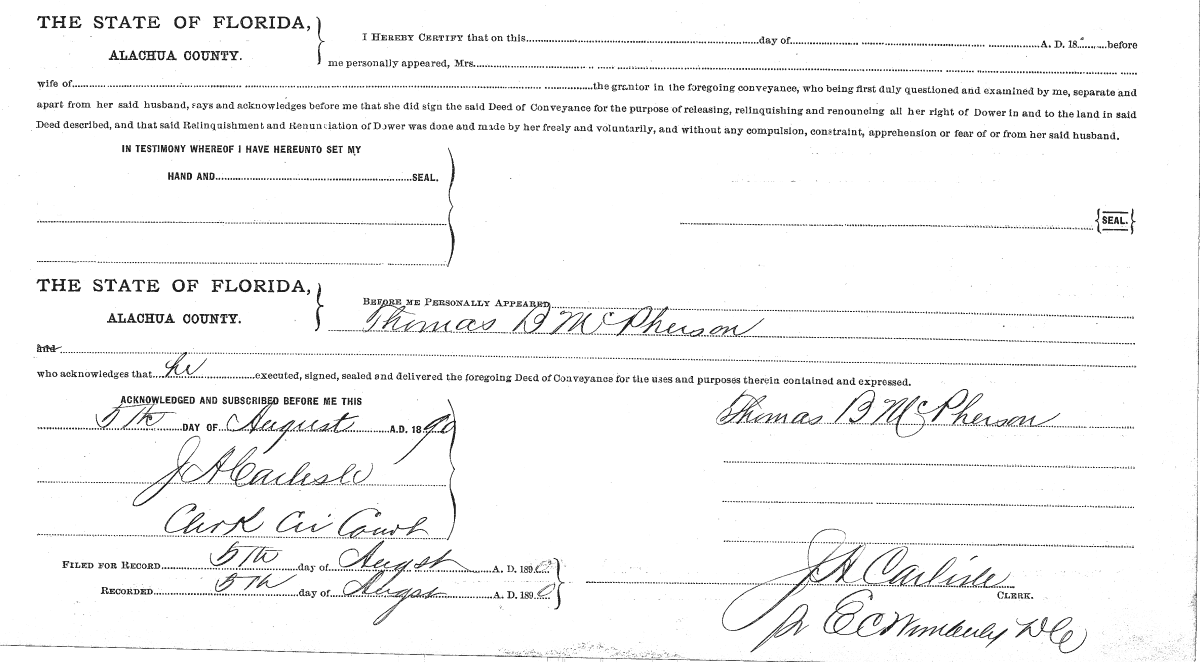 THE STATE OF FLORIDA,
ALACHUA COUNTY.
I HEREBY CERTIFY that on this day of A. D. 18 before
me personally appeared, Mrs.
wife of the grantor in the foregoing conveyance, who being first duly questioned and examined by me, separate and
apart from her said husband, says and acknowledges before me that she did sign the said Deed of Conveyance for the purpose of releasing, relinquishing and renouncing all her right of Dower in and to the land in said
Deed described, and that said Relinquishment and Renunciation of Dower was done and made by her freely and voluntarily, and without any compulsion, constraint, apprehension or fear of or from her said husband.
IN TESTIMONY WHEREOF I HAVE HEREUNTO SET MY
HAND AND SEAL.
{SEAL.}
THE STATE OF FLORIDA,
ALACHUA COUNTY.
BEFORE ME PERSONALLY APPEARED
Thomas B McPherson
and
who acknowledges that he executed, signed, sealed and delivered the foregoing Deed of Conveyance for the uses and purposes therein contained and expressed.
ACKNOWLEDGED AND SUBSCRIBED BEFORE ME THIS
5th DAY OF August A.D. 1890
Thomas B McPherson
J A Carlisle
Clerk Cir Court
FILED FOR RECORD 5Th day of Augst A. D. 1890
RECORDED 5Th day of Augst A. D. 1890
J A Carlisle
CLERK.
pr E C Wimberly D C